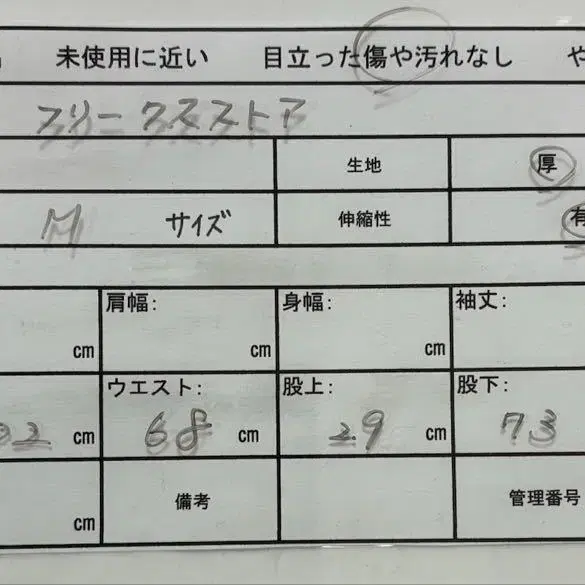 未使用に近い 目立った傷や汚れなし や
フリークスストア
生地 厚
M サイズ 伸縮性 有
肩幅: 身幅: 袖丈:
cm cm cm
ウエスト: 股上: 股下:
02 cm 68 cm 29 cm 73
cm 備考 管理番号